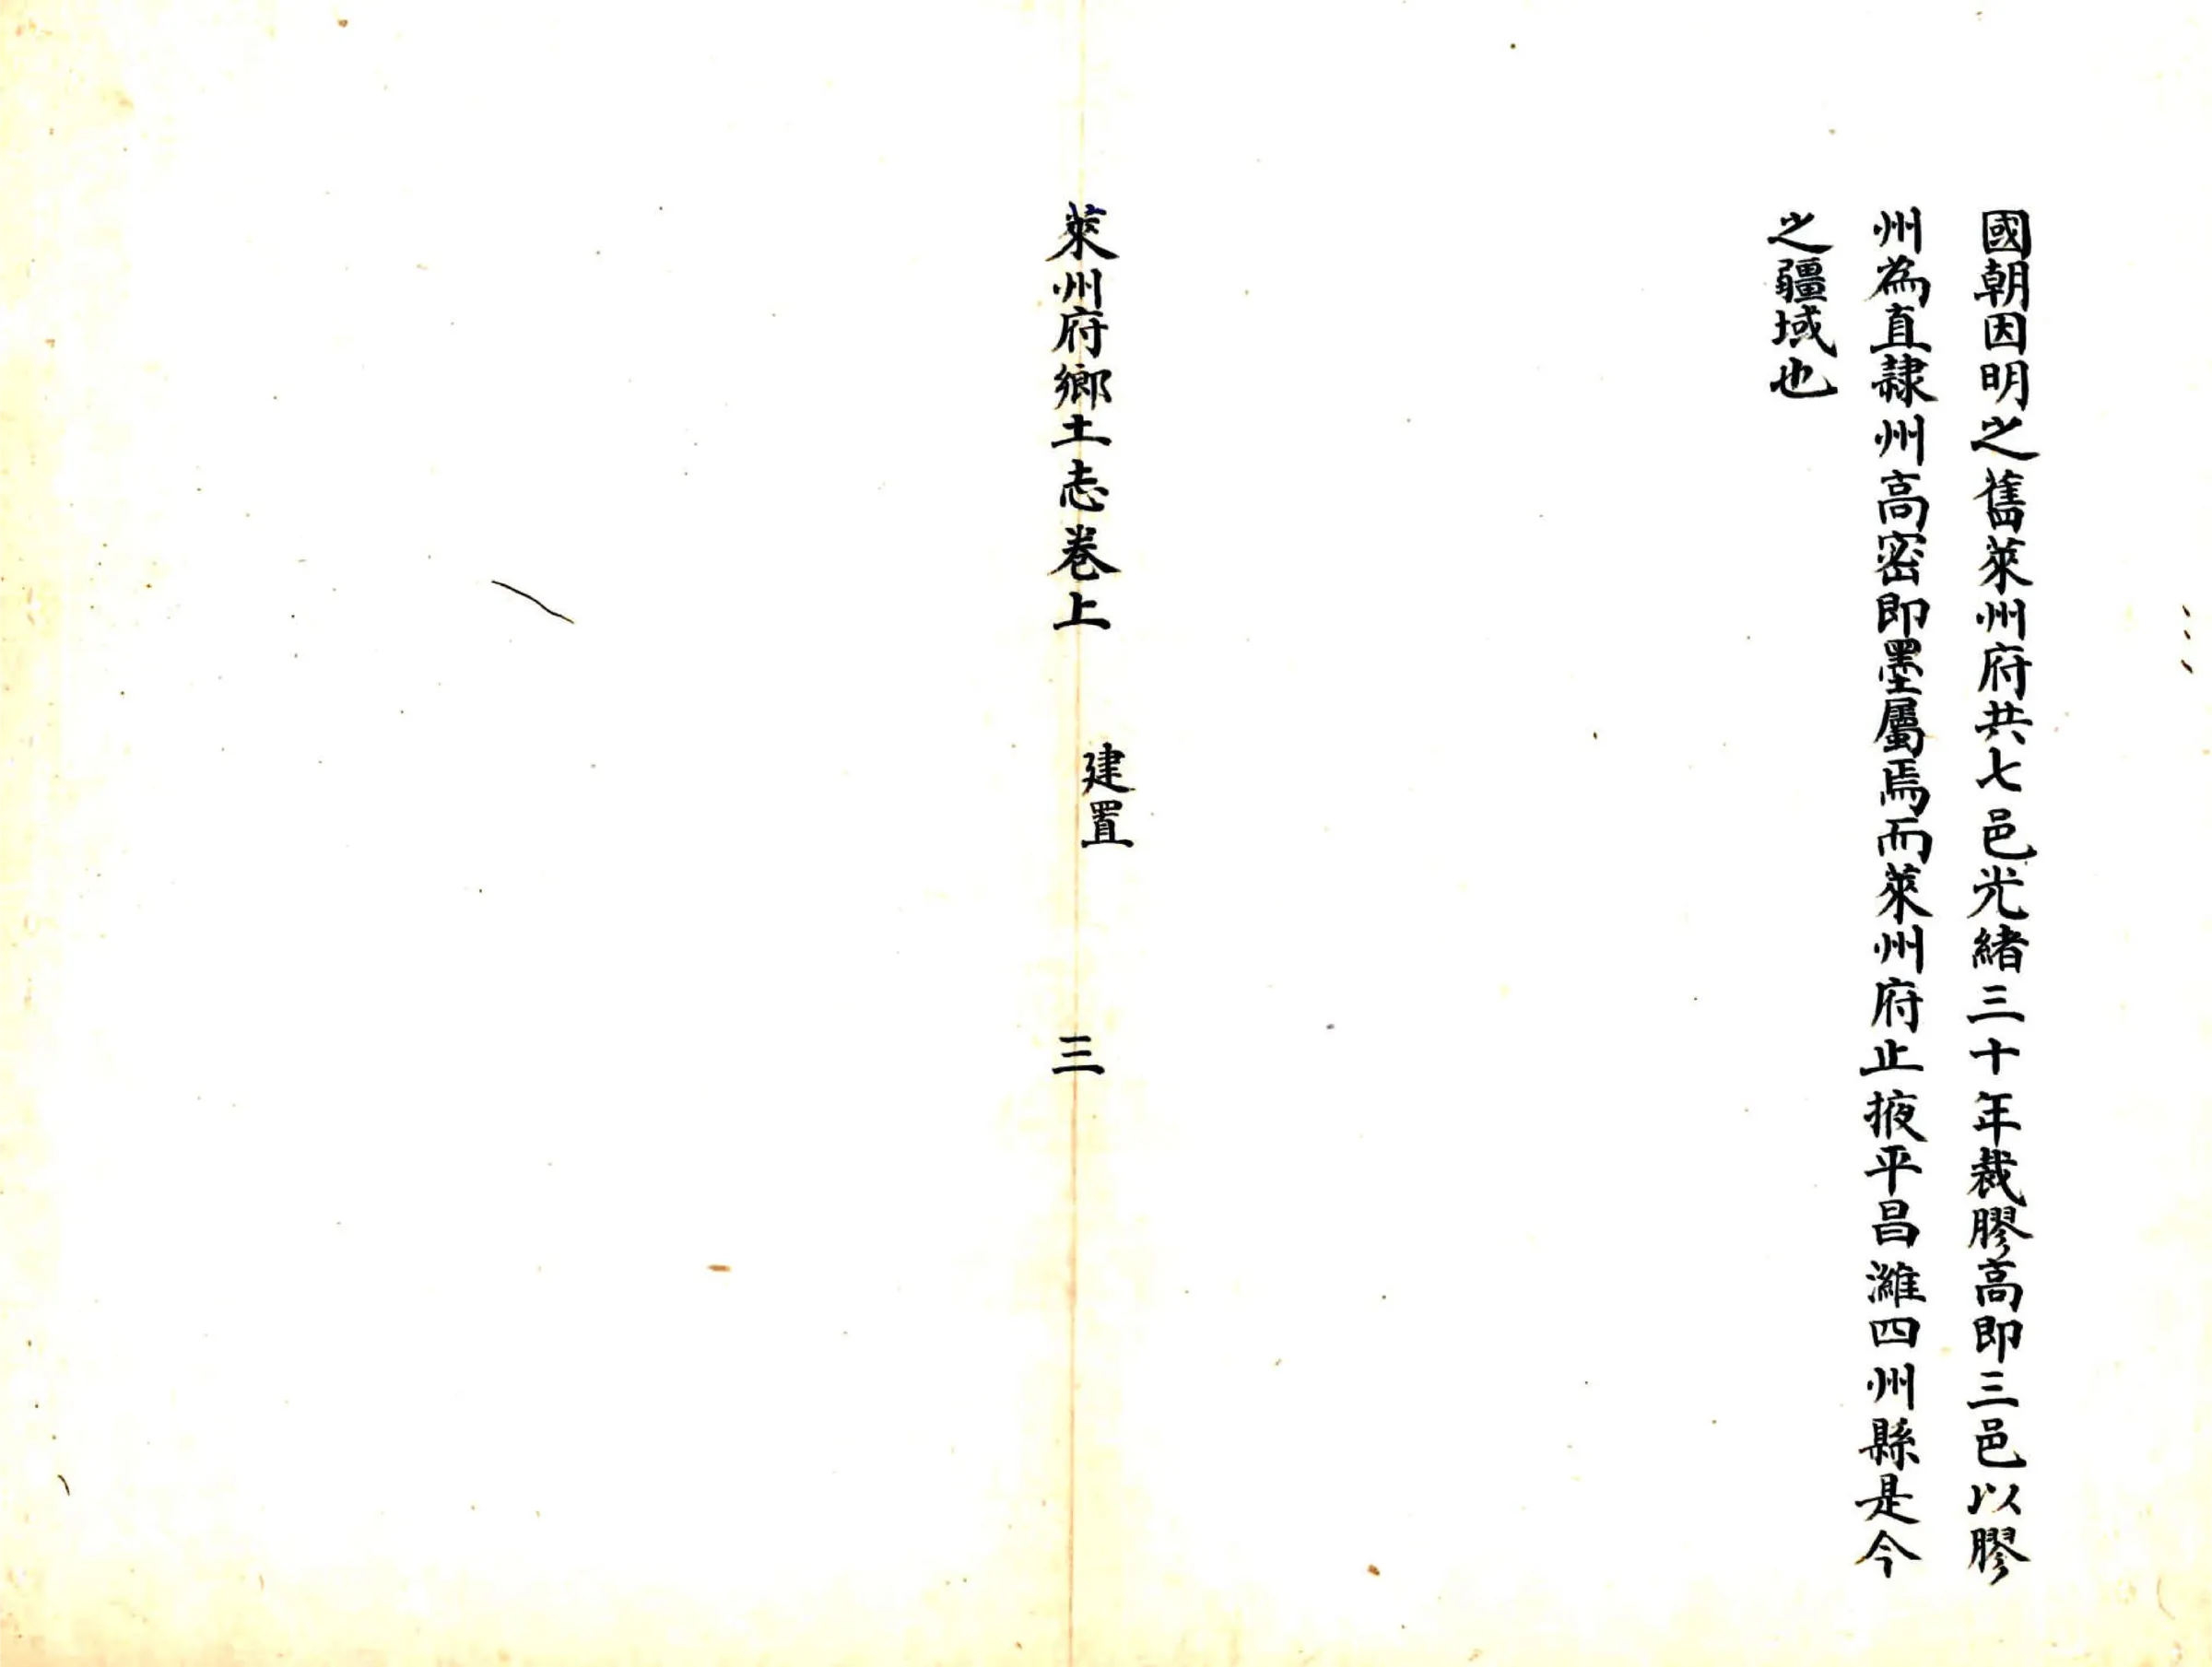 國朝因明之舊萊州府共七邑光緒三十年裁膠高即三邑以膠
州為直隸州高密即墨屬焉而萊州府止掖平昌濰四州縣是今
之疆域也
萊州府鄉土志卷上 建置 三